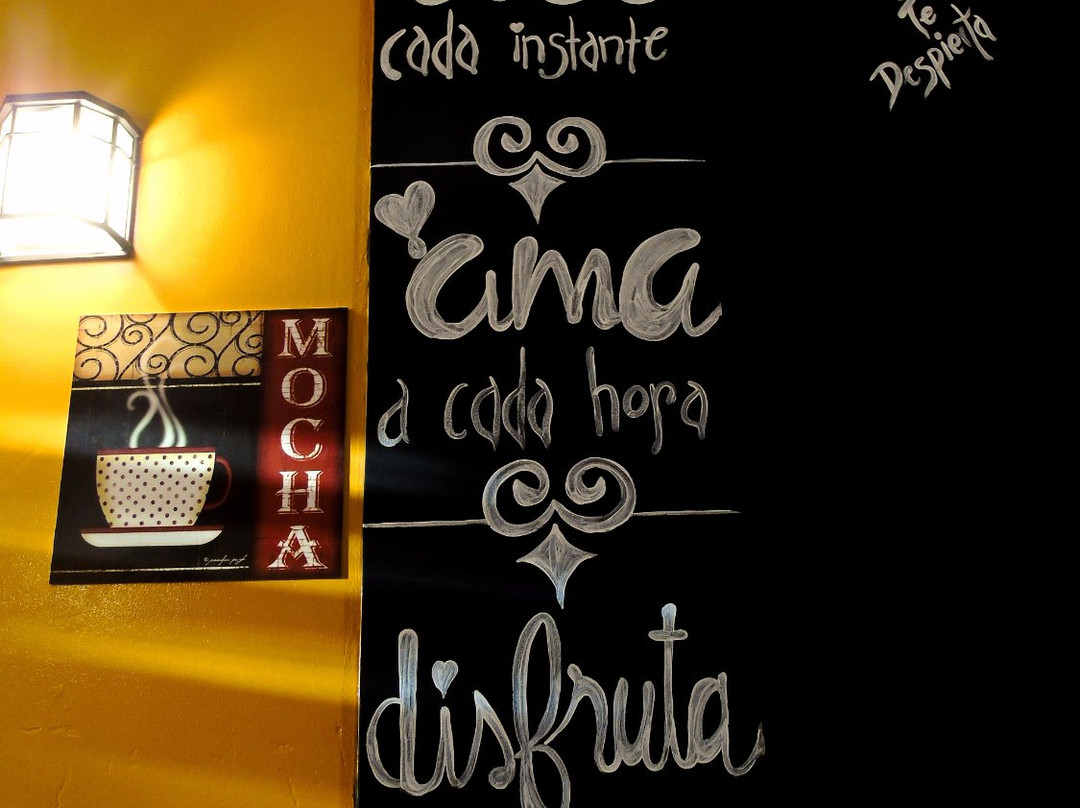 cada instante
Te
Despierta
ama
a cada hora
disfruta
MOCHA